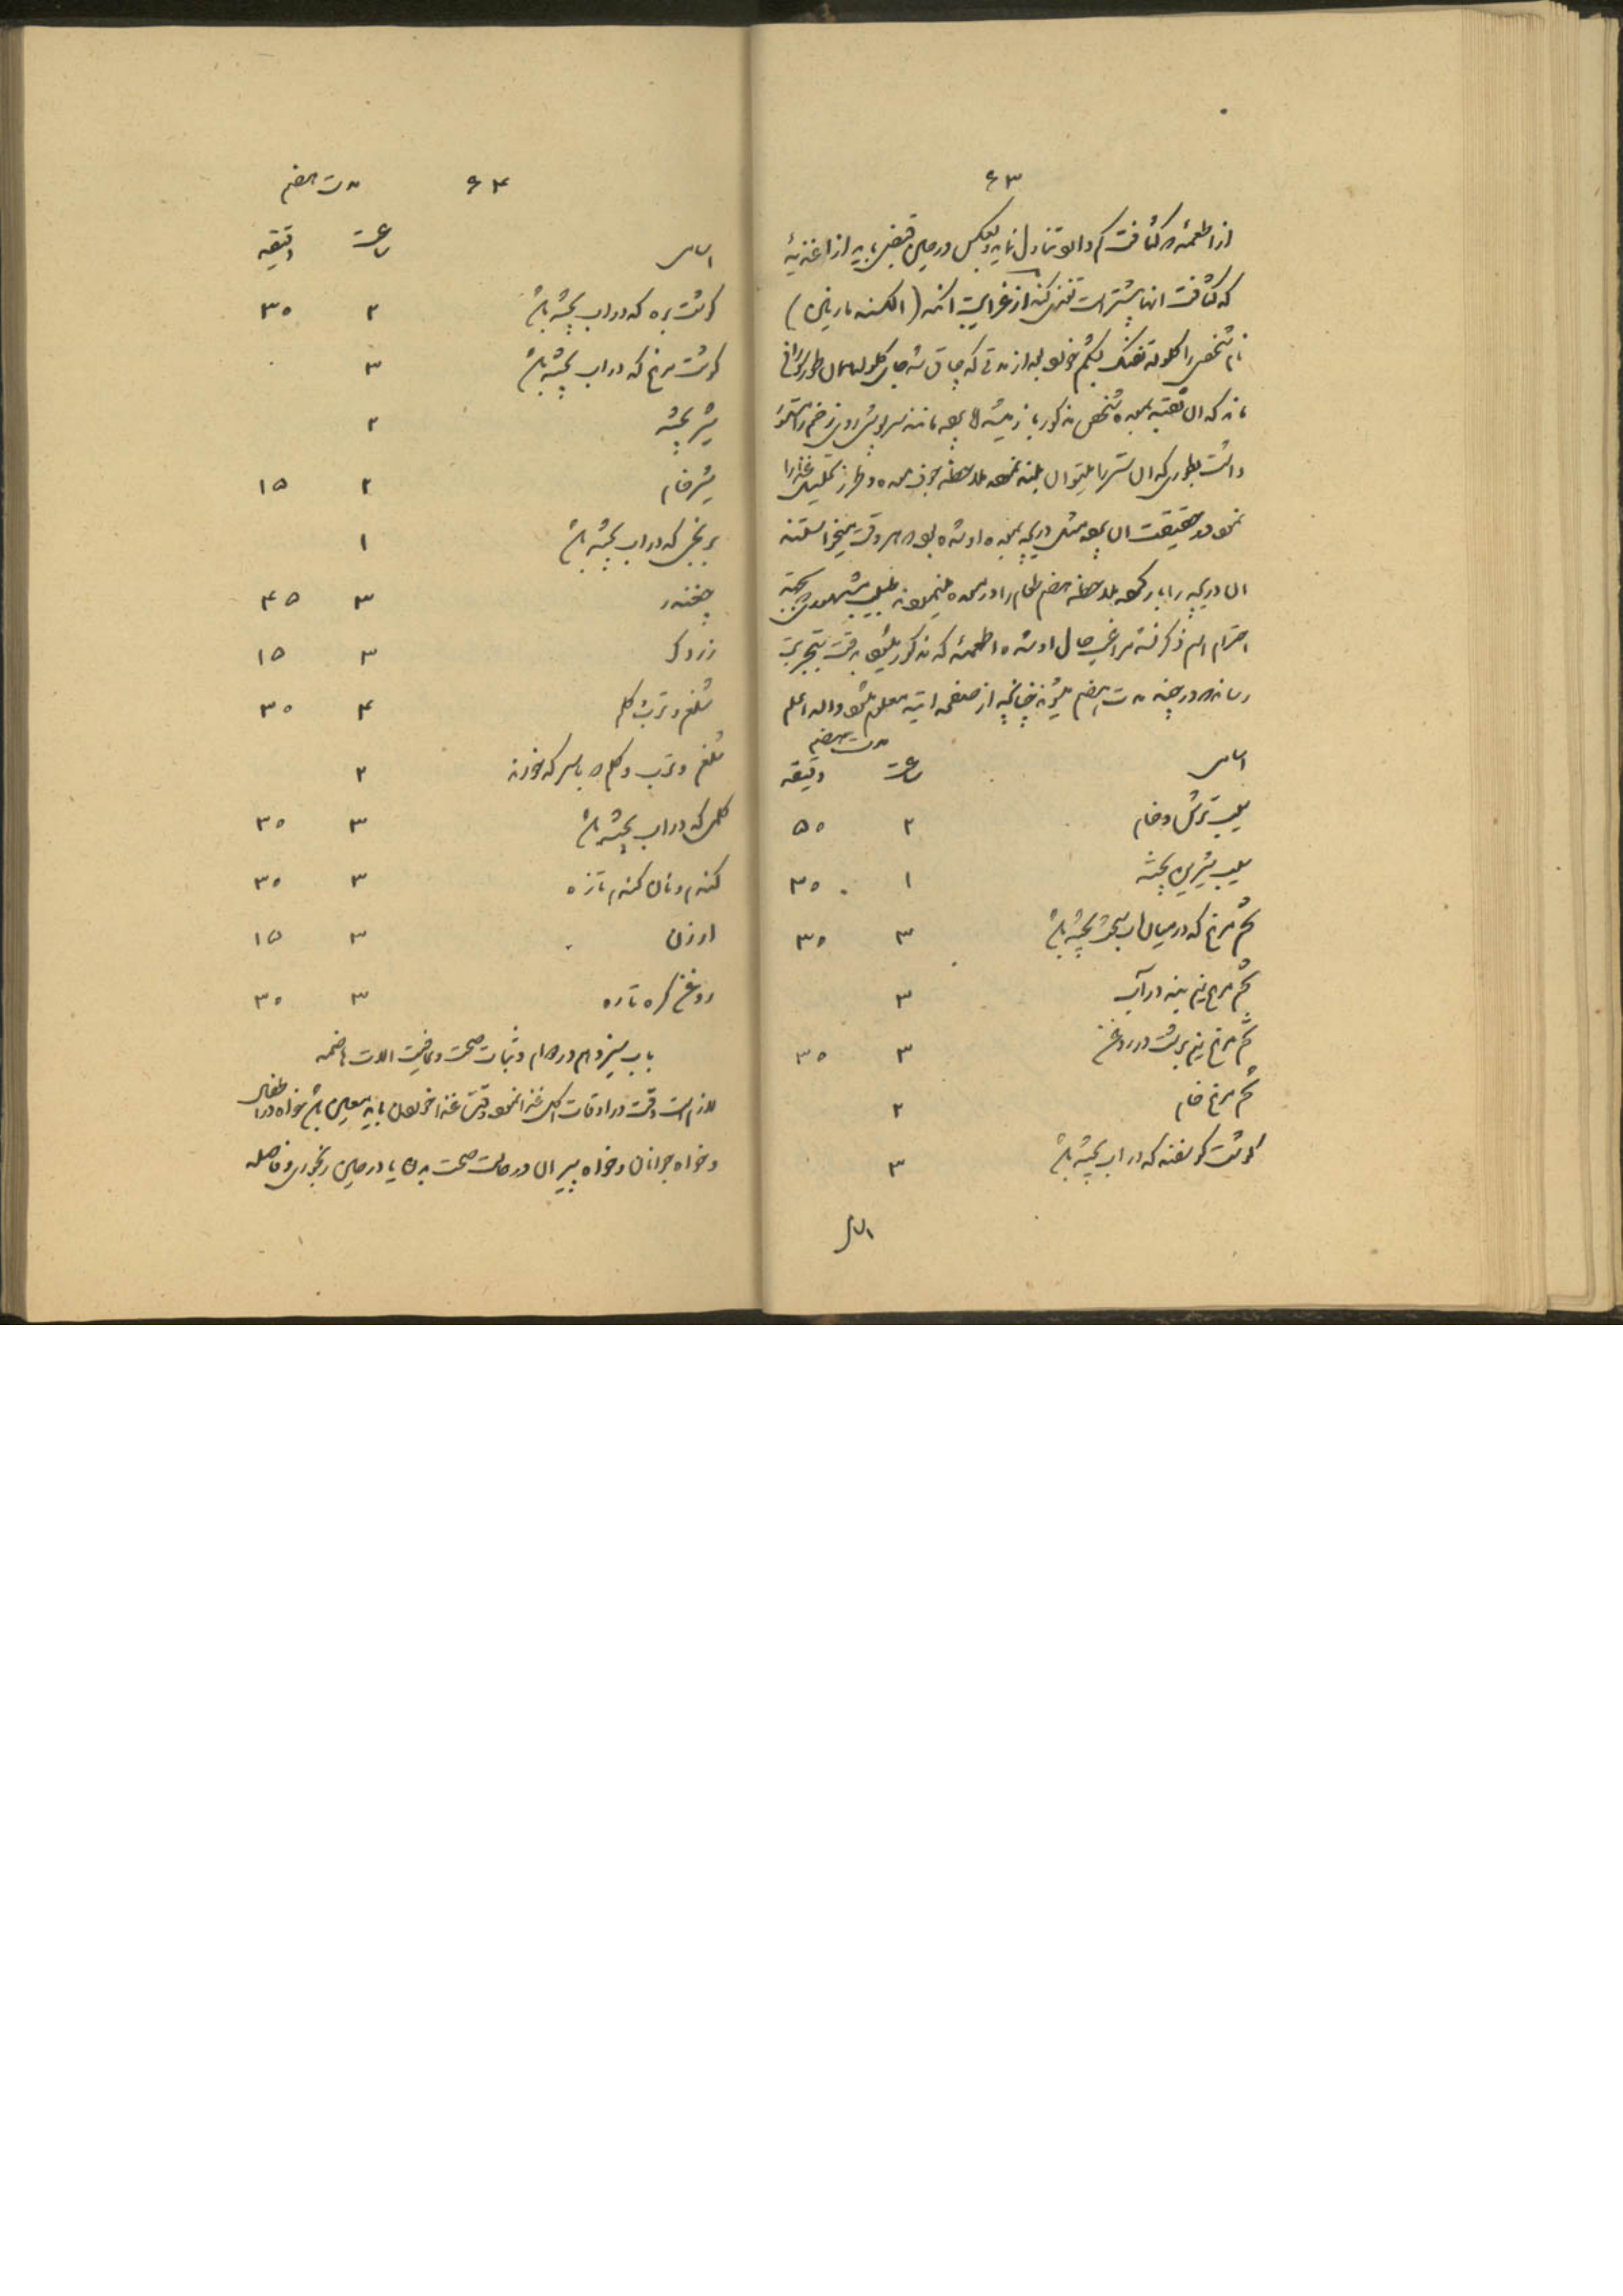 ۶۳
از اطعمهٔ که کثافت کم دارد تناول نماید و بعکس در حین قبض باید از اغذیهٔ
که کثافت آنها بیشتر است تغذی کند از غرایب آنکه (الکسند مارینی)
نام شخصی را گلوله تفنگ بشکم خورد بعد از مدتی که چاق شد جای گلوله همان طور سوراخ
ماند که آن ثقبه بمعده شخص مذکور باز میشد
داشت بطوری که آن ستر را میتوان بلند نموده ملاحظه جوف معده و طرز تحلیل غذا را
نمود در حقیقت آن پرده مثل دریچه بمعده او شده بود که هر وقت میخواستند
آن دریچه را باز کرده ملاحظه هضم طعام را در معده مینمودند طبیب مشهور
احترام اسم ذکر شده مراقب حال او شده اطعمهٔ که مذکور میشود بدقت بتجربه
رسانده که در چند مدت هضم میشوند چنانچه از صفحه آتیه معلوم میشود والله اعلم
مدت هضم
اسامی ساعت دقیقه
سیب ترش و خام ۲ ۵۰
سیب شیرین پخته ۱ ۳۰
تخم مرغ که در میان آب سخت پخته باشد ۳ ۳۰
تخم مرغ نیم بند در آب ۳
تخم مرغ نیم برشت در روغن ۳ ۳۰
تخم مرغ خام ۲
گوشت گوسفند که در آب پخته باشد ۳
اسامی
۶۴ مدت هضم
اسامی ساعت دقیقه
گوشت بره که در آب پخته باشد ۲ ۳۰
گوشت مرغ که در آب پخته باشد ۳
شیر پخته ۲
شیر خام ۲ ۱۵
برنجی که در آب پخته باشد ۱
چغندر ۳ ۴۵
زردک ۳ ۱۵
شلغم و ترب و کلم ۴ ۳۰
شلغم و ترب و کلم که با سرکه خورند ۲
کلمی که در آب پخته باشد ۳ ۳۰
گندم و نان گندم تازه ۳ ۳۰
ارزن ۳ ۱۵
روغن کره تازه ۳ ۳۰
باب سیزدهم در دوام و ثبات صحت و عافیت آلات هاضمه
لازم است دقت در اوقات اکل غذا نمود وقت غذا خوردن باید معین باشد خواه در اطفال
و خواه جوانان و خواه پیران در حالت صحت بدن یا در حین رنجوری و فاصله